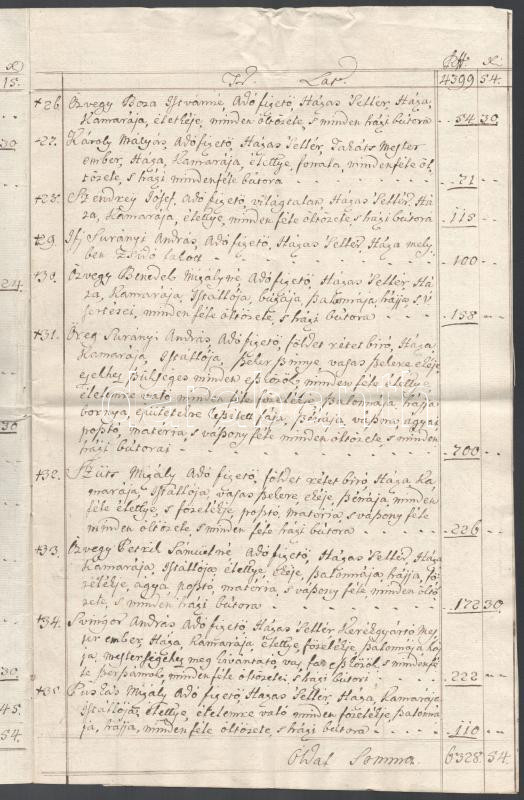 Rft. X.
Lat. 4399 54.
15.
26. Özvegy Boza Istvánné, Adó fizető, Házas Sellér, Háza,
Kamarája, életléje, minden öltözete, s minden házi bútora - 54 30
27. Károly Mátyás, Adó fizető, Házas Sellér, Takáts Mester
ember, Háza, Kamarája, élettye, fonala, mindenféle öl-
tözete, s házi mindenféle bútora - 71
28. Szendrey Jósef, Adó fizető, világtalan Házas Sellér, Há-
za, Kamarája, élettye, minden féle öltözete s házi bútora 115
29. Ifj Surányi András, Adó fizető, Házas Sellér, Háza mely-
ben Zsidó lakott - 100
30. Özvegy Benedek Mihályné, Adó fizető, Házas Sellér, Há-
za, Kamarája, Istállója, búzája, szalonnája, hájja, s
sertései, minden féle öltözete, s házi bútora - 158
31. Öreg Surányi András, Adó fizető, földet rétet bíró, Háza,
Kamarája, Istállója, vasas szekere eleje
minden féle élettye,
élelemre való minden féle főzeléke, szalonnája, hájja
bornya, épületekre fája, ágyai
posztó, matéria, s vászony féle minden öltözete, s minden
házi bútorai - 700
32. Szűts Mihály Adó fizető, földet rétet bíró Háza Ka-
marája, Istállója, vasas szekere eleje, minden
féle élettye, s főzeléke, posztó, matéria, s vászony féle
minden öltözete, s minden féle házi bútora - 226
33. Özvegy Petzil Sámuelné, Adó fizető, Házas Sellér, Háza
Kamarája, Istállója élettye, eleje, szalonnája, hájja, fő-
zeléke, ágya posztó, matéria, s vászony féle minden öltö-
zete, s minden házi bútora - 172 30
34. András Adó fizető, Házas Sellér Kerékgyártó Mes-
ter ember, Háza Kamarája élettye főzeléke, szalonnája há-
ja, mesterségéhez meg kívántató vas, fa eszközök, s mindenfé-
le szerszámok, mindenféle öltözetei, s házi bútori - 222
35. Puskás Mihály Adó fizető, Házas Sellér, Háza, Kamarája
Istállója, élettye, élelemre való minden főzeléke, szalonná-
ja, hájja, minden féle öltözete, s házi bútora - 110
Oldal Somma 6328 54.